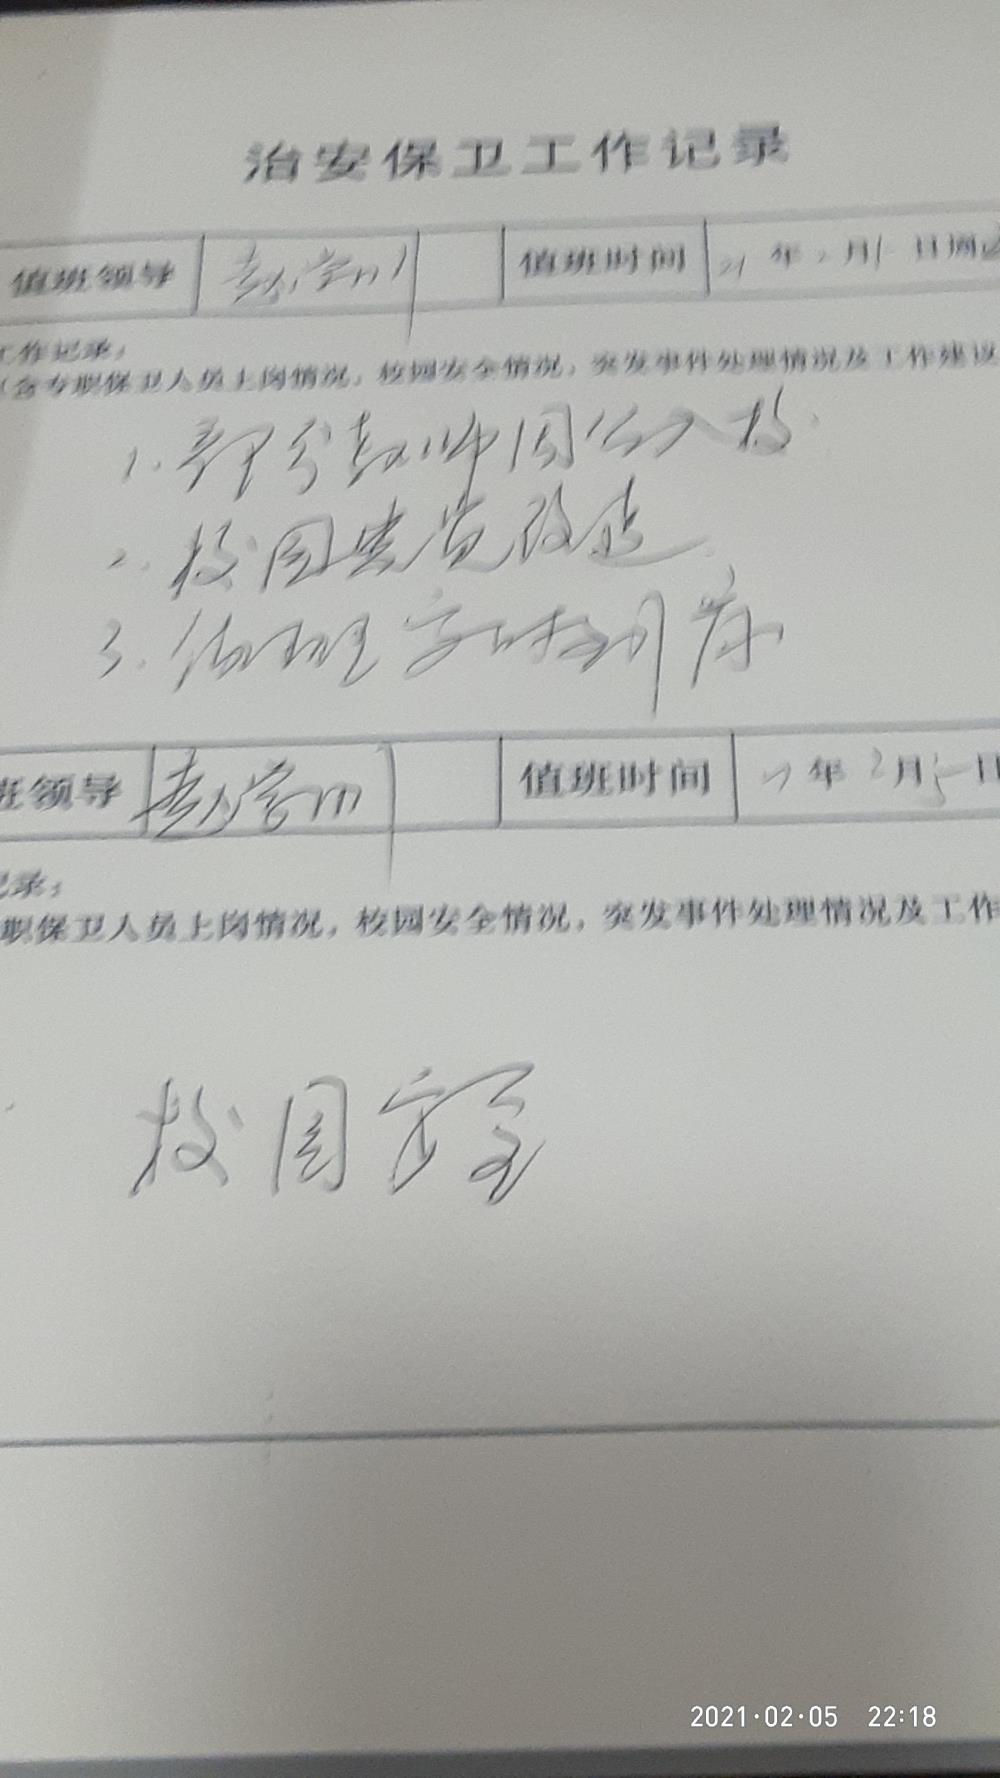 治安保卫工作记录
值班领导 赵学川 值班时间 21年2月1日周
工作记录：
（含专职保卫人员上岗情况，校园安全情况，突发事件处理情况及工作建议
1. 部分教师因公入校.
2. 校园改造.
3.
班领导 赵学川 值班时间 21年2月5日
记录：
职保卫人员上岗情况，校园安全情况，突发事件处理情况及工作
校园安全
2021·02·05 22:18